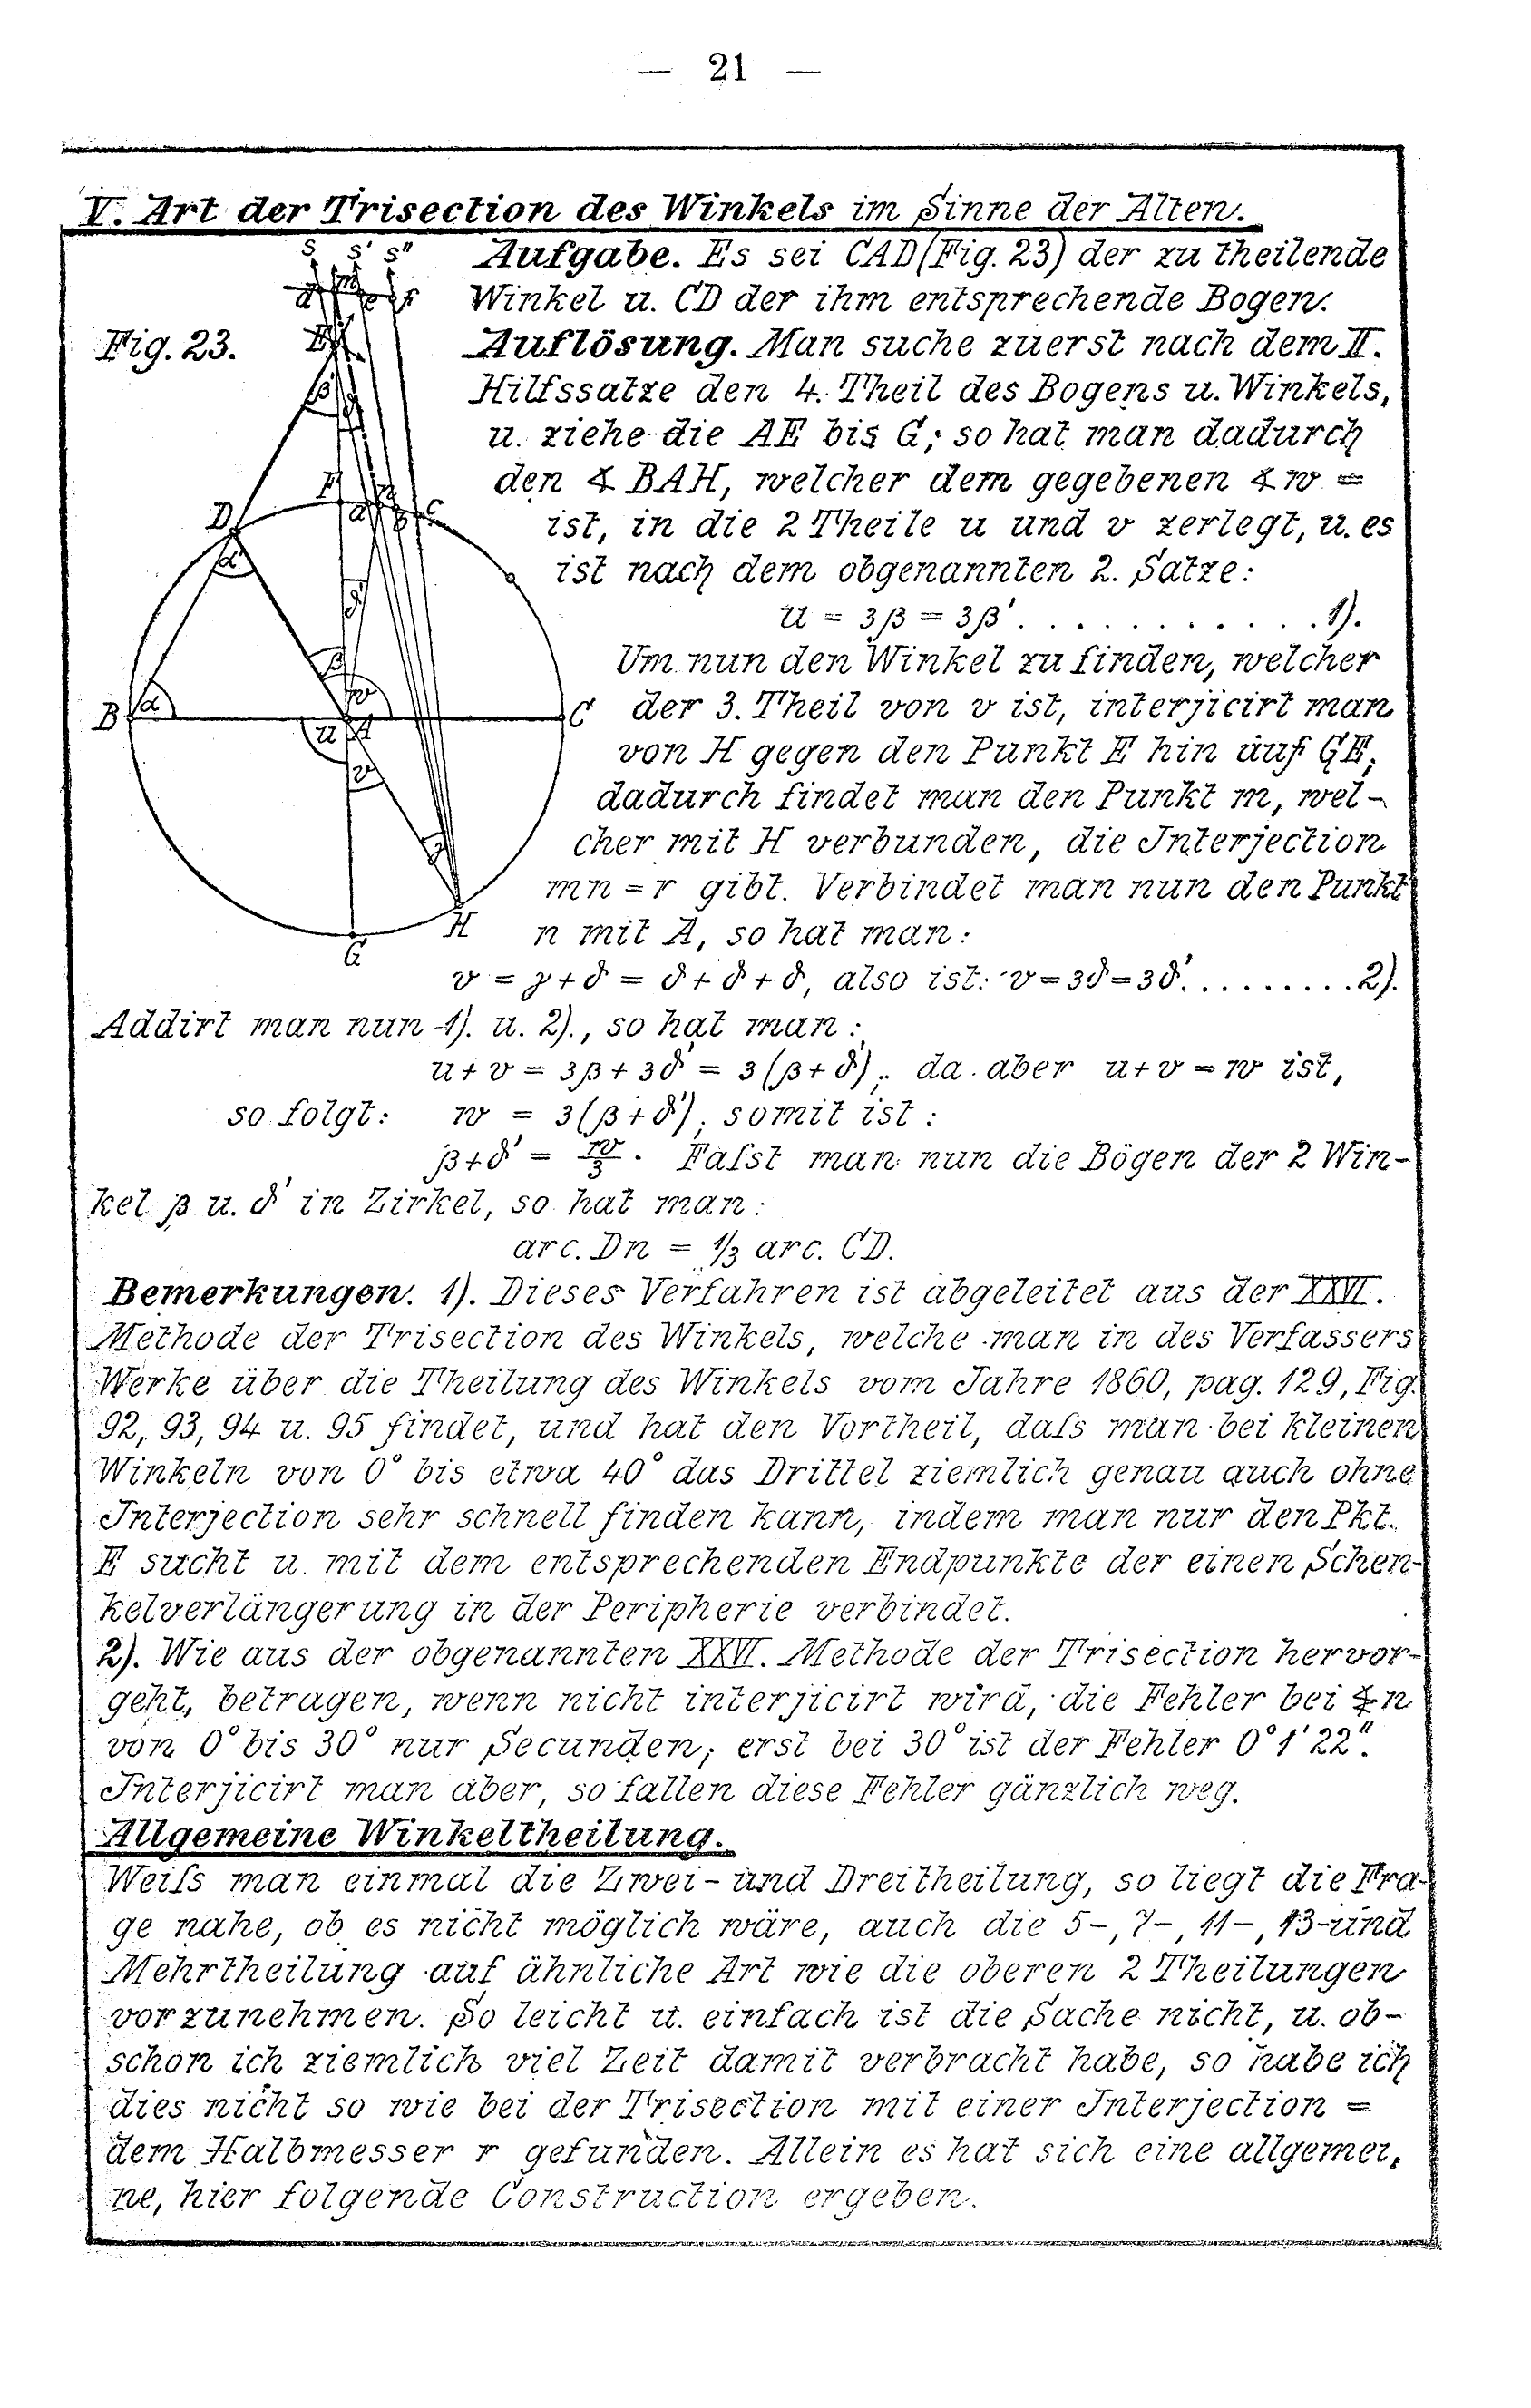 — 21 —
V. Art der Trisection des Winkels im Sinne der Alten.
Aufgabe. Es sei CAD (Fig. 23) der zu theilende
Winkel u. CD der ihm entsprechende Bogen.
Fig. 23.
Auflösung. Man suche zuerst nach dem II.
Hilfssatze den 4. Theil des Bogens u. Winkels,
u. ziehe die AE bis G; so hat man dadurch
den ∢ BAH, welcher dem gegebenen ∢ w =
ist, in die 2 Theile u und v zerlegt, u. es
ist nach dem obgenannten 2. Satze:
u = 3β = 3β' . . . . . . . . . . . 1).
Um nun den Winkel zu finden, welcher
der 3. Theil von v ist, interjicirt man
von H gegen den Punkt E hin auf GE,
dadurch findet man den Punkt m, wel-
cher mit H verbunden, die Interjection
mn = r gibt. Verbindet man nun den Punkt
n mit A, so hat man:
v = γ + δ = δ + δ + δ, also ist: v = 3δ = 3δ'. . . . . . . . . 2).
Addirt man nun 1). u. 2)., so hat man:
u + v = 3β + 3δ' = 3 (β + δ'); da aber u + v = w ist,
so folgt: w = 3 (β + δ'); somit ist:
β + δ' = w/3. Faſst man nun die Bögen der 2 Win-
kel β u. δ' in Zirkel, so hat man:
arc. Dn = 1/3 arc. CD.
Bemerkungen. 1). Dieses Verfahren ist abgeleitet aus der XXVI.
Methode der Trisection des Winkels, welche man in des Verfassers
Werke über die Theilung des Winkels vom Jahre 1860, pag. 129, Fig.
92, 93, 94 u. 95 findet, und hat den Vortheil, daſs man bei kleinen
Winkeln von 0° bis etwa 40° das Drittel ziemlich genau auch ohne
Interjection sehr schnell finden kann, indem man nur den Pkt.
E sucht u. mit dem entsprechenden Endpunkte der einen Schen-
kelverlängerung in der Peripherie verbindet.
2). Wie aus der obgenannten XXVI. Methode der Trisection hervor-
geht, betragen, wenn nicht interjicirt wird, die Fehler bei ∢n
von 0° bis 30° nur Secunden; erst bei 30° ist der Fehler 0° 1' 22".
Interjicirt man aber, so fallen diese Fehler gänzlich weg.
Allgemeine Winkeltheilung.
Weiſs man einmal die Zwei- und Dreitheilung, so liegt die Fra-
ge nahe, ob es nicht möglich wäre, auch die 5-, 7-, 11-, 13- und
Mehrtheilung auf ähnliche Art wie die oberen 2 Theilungen
vorzunehmen. So leicht u. einfach ist die Sache nicht, u. ob-
schon ich ziemlich viel Zeit damit verbracht habe, so habe ich
dies nicht so wie bei der Trisection mit einer Interjection =
dem Halbmesser r gefunden. Allein es hat sich eine allgemei,
ne, hier folgende Construction ergeben.